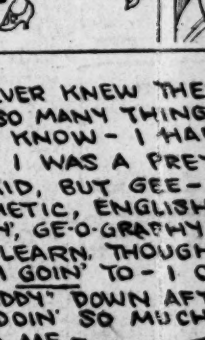 VER KNEW THE
SO MANY THING
KNOW - I HA
I WAS A PRE
ID, BUT GEE -
METIC, ENGLISH
Y', GE-O-GRAPHY
LEARN. THOUGH
GOIN' TO - I
DDY" DOWN AFT
DOIN' SO MUCH
ME -